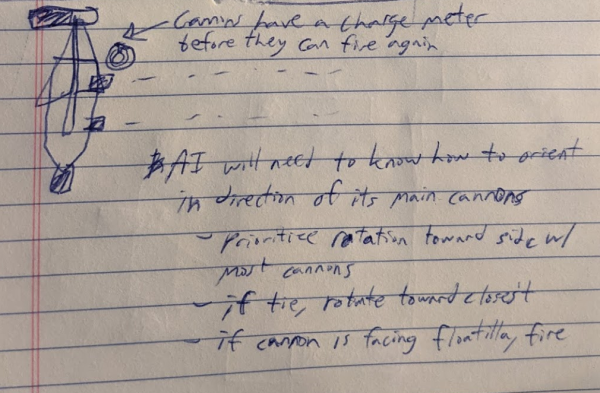 Cannons have a charge meter
before they can fire again
AI will need to know how to orient
in direction of its main cannons
- prioritize rotation toward side w/
most cannons
- if tie, rotate toward closest
- if cannon is facing floatilla, fire